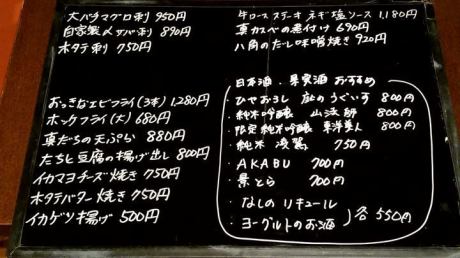 大バチマグロ刺 950円
自家製〆サバ刺 890円
ホタテ刺 750円
おっきなエビフライ(3本) 1,280円
ホッケフライ(大) 680円
真だちの天ぷら 880円
たちと豆腐の揚げ出し 800円
イカマヨチーズ焼き 750円
ホタテバター焼き 750円
イカゲソ揚げ 500円
牛ロースステーキ ネギ塩ソース 1,180円
真カスベの煮付け 690円
八角のだし味噌焼き 920円
日本酒・果実酒 おすすめ
・ひやおろし 庭のうぐいす 800円
・純米吟醸 山法師 800円
・限定純米吟醸 東洋美人 800円
・純米 凌駕 750円
・AKABU 700円
・景とら 700円
・なしのリキュール
・ヨーグルトのお酒 各550円